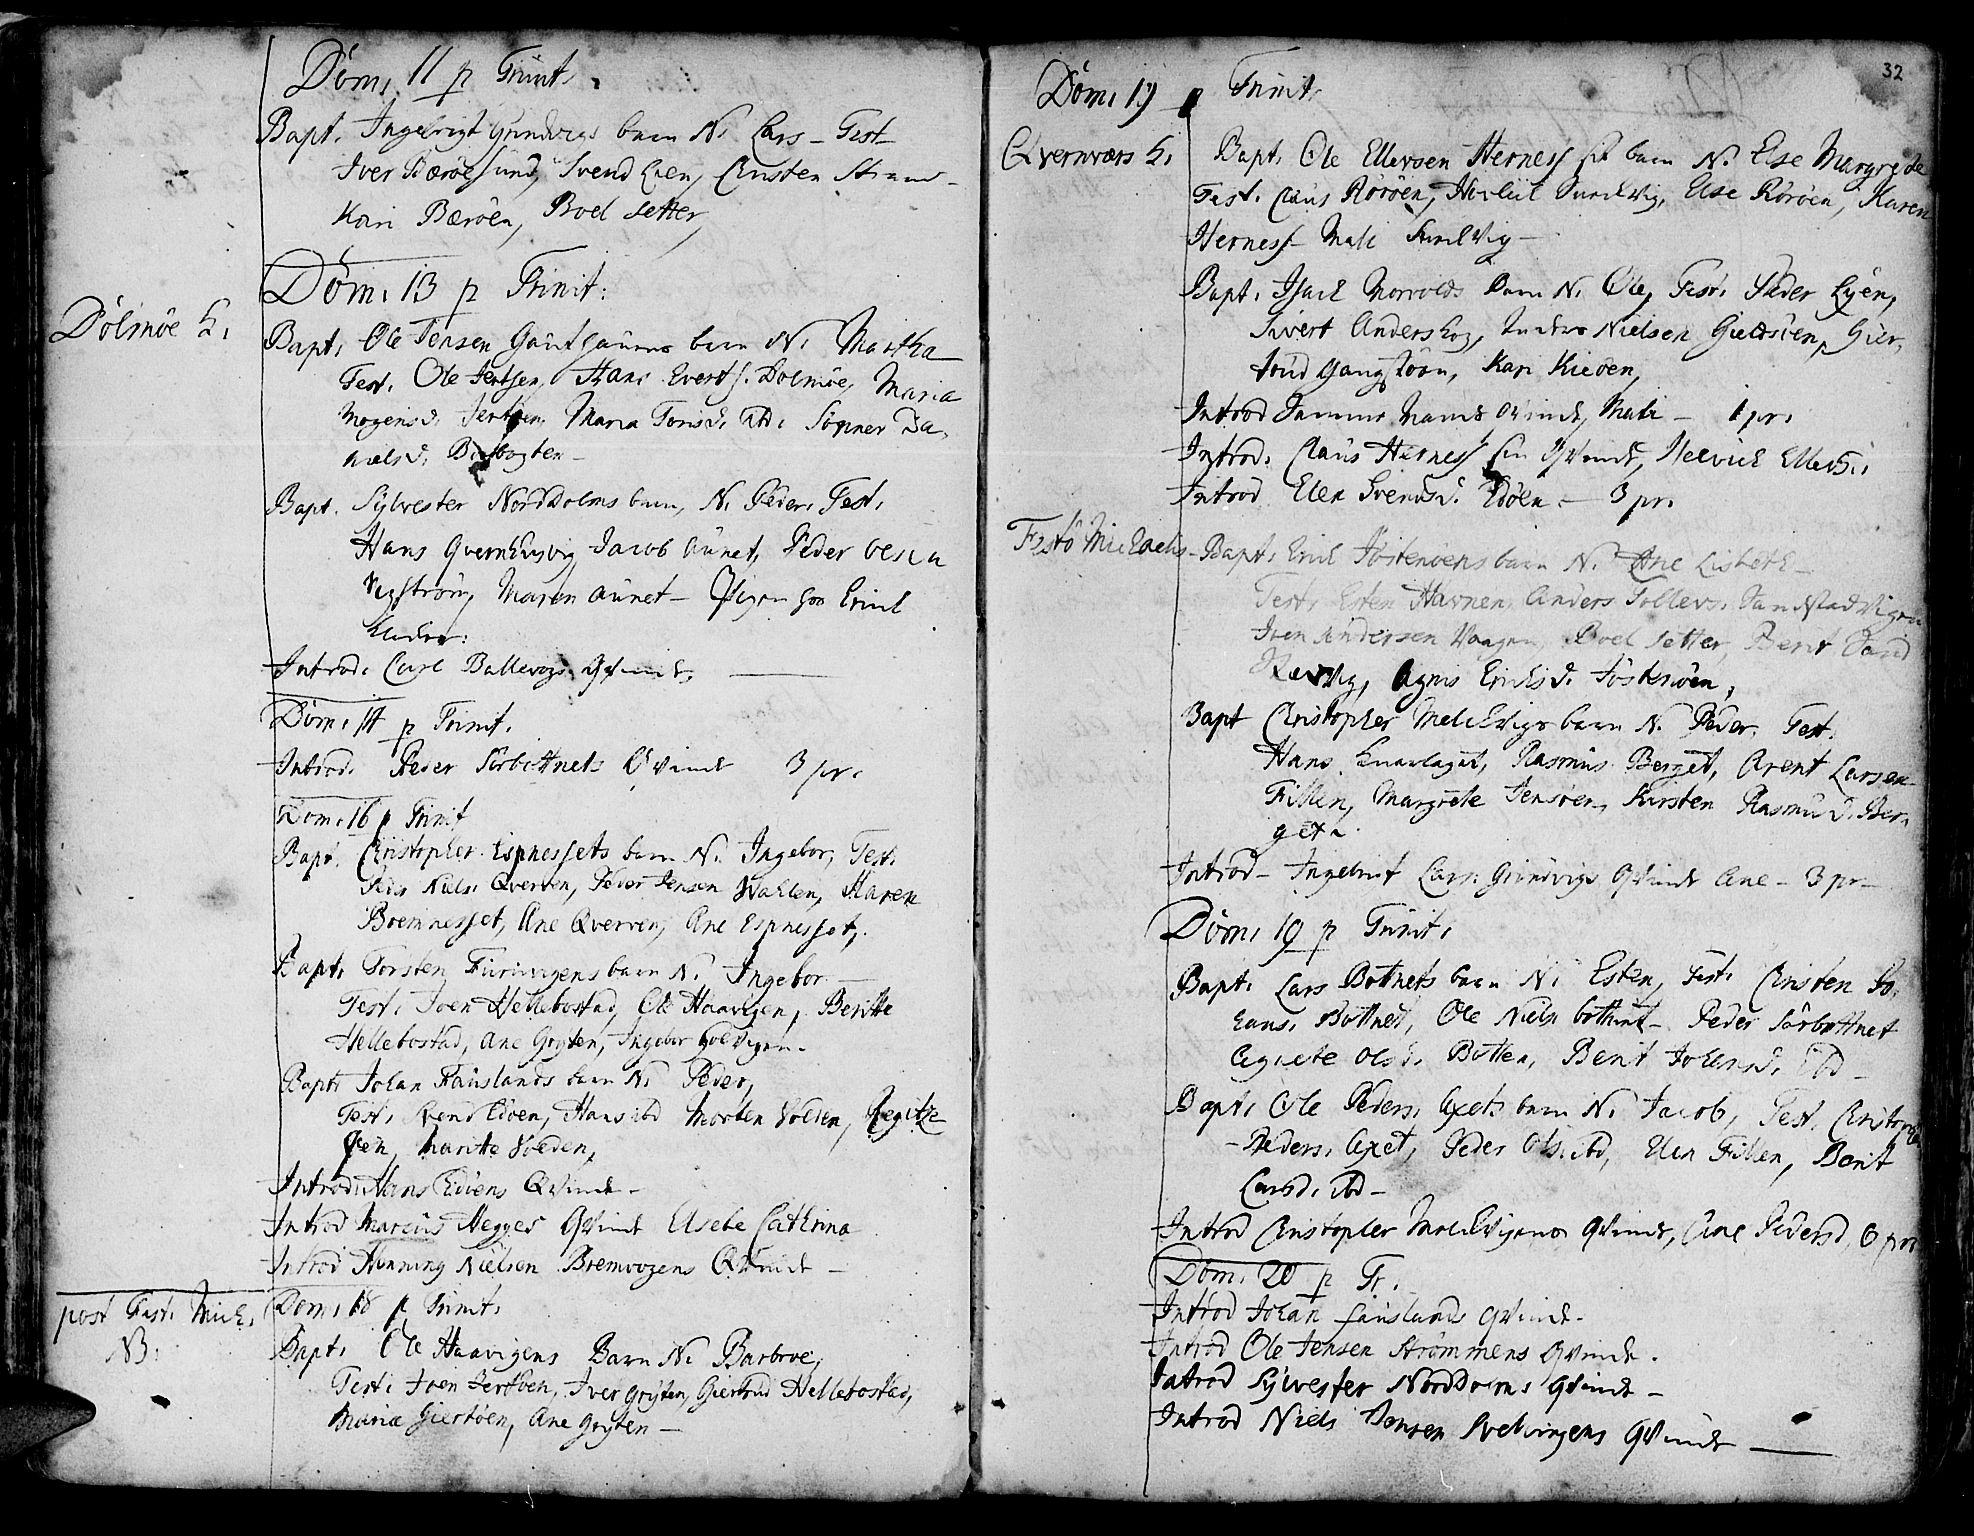 Dom. 11 p Trinit.
Bapt. Ingebrigt Grindvigs barn N. Lars - Test
Iver Bæröesund, Svend Øen, Christen Strand
Kari Bæröen, Boel Setter,
Dom. 13 p Trinit:
Dolmöe K.
Bapt. Ole Jensen barn N. Martha
Test. Ole Jertsen, Hans Evertss. Dolmöe, Maria
Mogensd. Jertöen, Maria Tönisd. ibd. Da-
nielsd.
Bapt. Sylvester NordDolms barn, N. Peder. Test.
Hans Jacob Aunet, Peder
Maren Aunet - Pigen hos Erich
Introd. Carl Qvinde
Dom. 14 p Trinit.
Introd. Peder Sörbottnets Qvinde 3 pr.
Dom. 16 p Trinit
Bapt. Christopher Espnessets barn N. Ingebor, Test.
Niels. Qverven, Peder Jensen Wahlen, Maren
Boemnesset, Ane Qverven, Ane Espnesset,
Bapt. Torsten barn N. Ingebor
Test. Joen Hellebostad, Ole Haavigen, Beritte
Hellebostad, Ane Gryten, Ingebor
Bapt. Johan Fauslands barn N. Peder,
Test. Svend Edöen, Hans ibd Morten Volden, Regitze
Øen, Maritte Volden,
Introd. Hans Edöens Qvinde -
Introd Marcus Hegges Qvinde Elsebe Cathrina
Introd Henning Nielsen Bremvogens Qvinde -
post Fest. Mich.
NB.
Dom. 18 p Trinit.
Bapt. Ole Haavigens Barn N. Barbroe,
Test. Joen Jertöen, Iver Gryten, Giertrud Hellebostad,
Maria Giertöen, Ane Gryten -
32
Dom. 19 p Trinit.
Qvernværs K.
Bapt. Ole Ellevsen Herness sit barn N. Else Margrede
Test. Claus Röröen, Sundvig, Else Röröen, Karen
Herness Mali Sundvig -
Bapt. Isach Morvolds barn N. Ole, Test. Peder Øyen,
Sivert Anderskog, Anders Nielsen Gieldsöen, Gier-
trud Gangstöen, Kari Kiöen,
Introd Hammer Qvinde, Mali - 1 pr.
Introd. Claus Herness sin Qvinde, Helvich Ellevs.
Introd Elen Svendsd. Edöen - 3 pr.
Festo Michaelis -
Bapt. Erich Jöstenöens barn N. Ane Lisbeth -
Test. Esten Havnen, Anders Tollevs. Sandstadvigen
Iven Andersen Vaagen, Boel Setter, Berit Sand
Agnis Erichsd. Jöstenöen,
Bapt Christopher Melchvigs barn N. Peder. Test.
Hans Knarlaget, Rasmus Berget, Arent Larsen
Fillen, Margrete Jensöen, Kirsten Rasmusd. Ber-
get.
Introd - Ingebrict Lars. Grindvigs Qvinde Ane - 3 pr -
Dom. 19 p Trinit.
Bapt. Lars Bottnets barn N. Esten, Test. Christen Jo-
hans. Bottnet, Ole Niels. bottnet - Peder Sörbottnet
Agnete Olsd. Botten, Berit Johansd. ibd -
Bapt. Ole Peders. Axets barn N. Jacob, Test. Christopher
Peders. Axet, Peder Ols. ibd, Elen Fillen, Berit
Larsd. ibd -
Introd Christopher Melchvigens Qvinde, Ane Pedersd, 6 pr
Dom. 20 p Tr.
Introd Johan Fauslands Qvinde -
Introd Ole Jensen Strömmens Qvinde.
Introd Sylvester NordDolms Qvinde -
Introd Niels Jonsen Qvinde